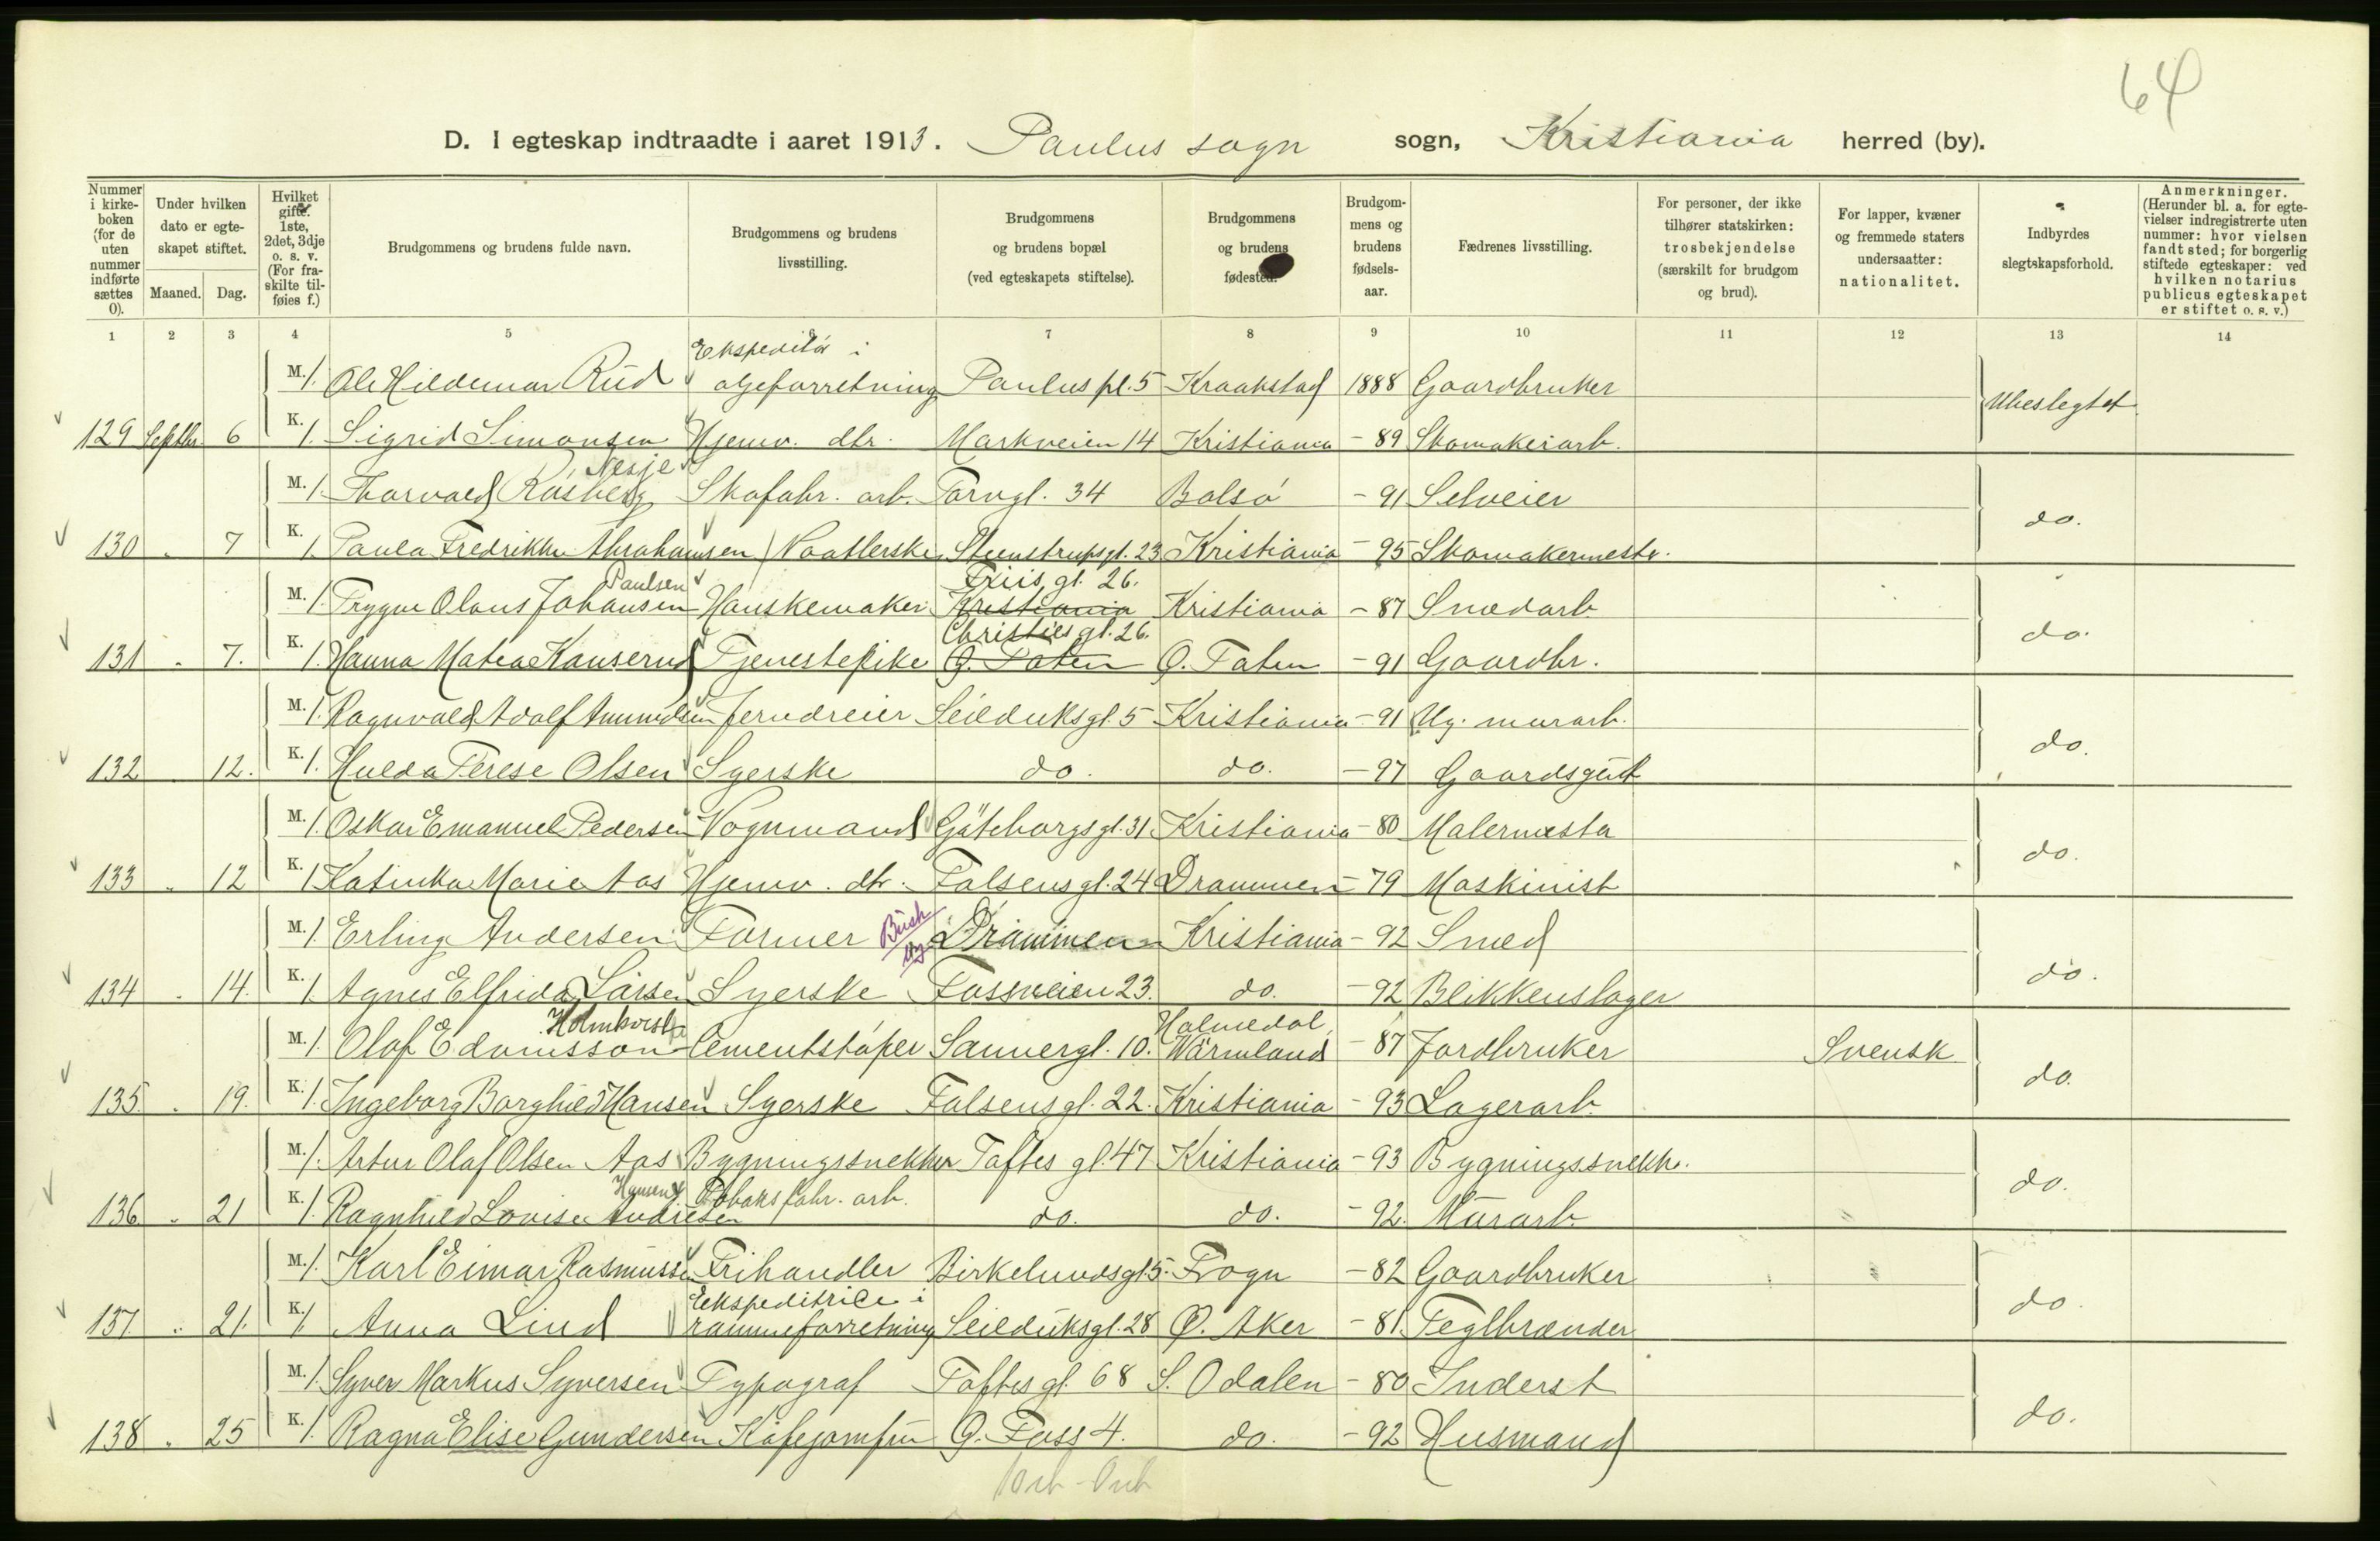 64
D. I egteskap indtraadte i aaret 1913. Paulus sogn sogn, Kristiania herred (by).
Nummer i kirke-boken (for de uten nummer indførte sættes 0).
Under hvilken dato er egte-skapet stiftet.
Maaned. Dag.
Hvilket gifte. 1ste, 2det, 3dje o. s. v. (For fra-skilte til-føies f.)
Brudgommens og brudens fulde navn.
Brudgommens og brudens livsstilling.
Brudgommens og brudens bopæl (ved egteskapets stiftelse).
Brudgommens og brudens fødested.
Brudgom-mens og brudens fødsels-aar.
Fædrenes livsstilling.
For personer, der ikke tilhører statskirken: trosbekjendelse (særskilt for brudgom og brud).
For lapper, kvæner og fremmede staters undersaatter: nationalitet.
Indbyrdes slegtskapsforhold.
Anmerkninger. (Herunder bl. a. for egte-vielser indregistrerte uten nummer: hvor vielsen fandt sted; for borgerlig stiftede egteskaper: ved hvilken notarius publicus egteskapet er stiftet o. s. v.)
1 2 3 4 5 6 7 8 9 10 11 12 13 14
Ekspeditör i
M. 1. Ole Hildemar Rud oljeforretning Paulus pl. 5 Kraakstad 1888 Gaardbruker
Ubeslegtet
129 Septbr 6 K. 1. Sigrid Simonsen Hjemv. dtr. Markveien 14 Kristiania - 89 Skomakerarb.
Nesje
M. 1. Thorvald Rösberg Skofabr. arb. Torvgl. 34 Bolsö - 91 Selveier
do.
130 " 7 K. 1. Paula Fredrikke Abrahamsen Vaatlerske Steenstrupsgt. 23 Kristiania - 95 Skomakermestr.
Paulsen Friis gl. 26.
M. 1. Trygve Olaus Johansen Hanskemaker Kristiania Kristiania - 87 Smedarb.
Christies gl. 26.
do.
131 " 7. K. 1. Hanna Matea Kanserud Tjenestepike Ö. Toten Ö. Toten - 91 Gaardbr.
M. 1. Ragnvald Adolf Amundsen Jerndreier Seilduksgl. 5 Kristiania - 91 Ug. murarb.
do.
132 " 12. K. 1. Hulda Terese Olsen Syerske do. do. - 97 Gaardsgut
M. 1. Oskar Emanuel Pedersen Vognmand Göteborgsgl. 31 Kristiania - 80 Malermester
do.
133 " 12 K. 1 Katinka Marie Aas Hjemv. dtr. Falsensgl. 24 Drammen - 79 Maskinist
M. 1. Erling Andersen Former Drammen Kristiania - 92 Smed
do.
134 " 14. K. 1. Agnes Elfrida Larsen Syerske Fossveien 23. do. - 92 Blikkenslager
Holmkvist Holmedal,
M. 1. Olof Edvinsson Cementstöper Sannergl. 10. Wärmland - 87 Jordbruker Svensk
do.
135 " 19. K. 1. Ingeborg Borghild Hansen Syerske Falsensgl. 22. Kristiania - 93 Lagerarb.
M. 1. Artur Olaf Olsen Aas Bygningssnekker Toftes gl. 47 Kristiania - 93 Bygningssnekk.
Hansen Tobaksfabr. arb.
do.
136 " 21 K. 1. Ragnhild Lovise Andresen do. do. - 92. Murarb.
M. 1. Karl Eimar Rasmussen Frihandler Birkelundsgl. 5. Frogn - 82 Gaardbruker
Ekspeditrice i
do.
137. " 21. K. 1 Anna Lind rammeforretning Seilduksgl. 28 Ö. Aker - 81. Teglbrænder
M. 1. Syver Markus Syversen Typograf Toftesgl. 68 S. Odalen - 80 Inderst
do.
138 " 25 K. 1. Ragna Elise Gundersen Kafejomfru Ö. Foss 4. do. - 92 Husmand